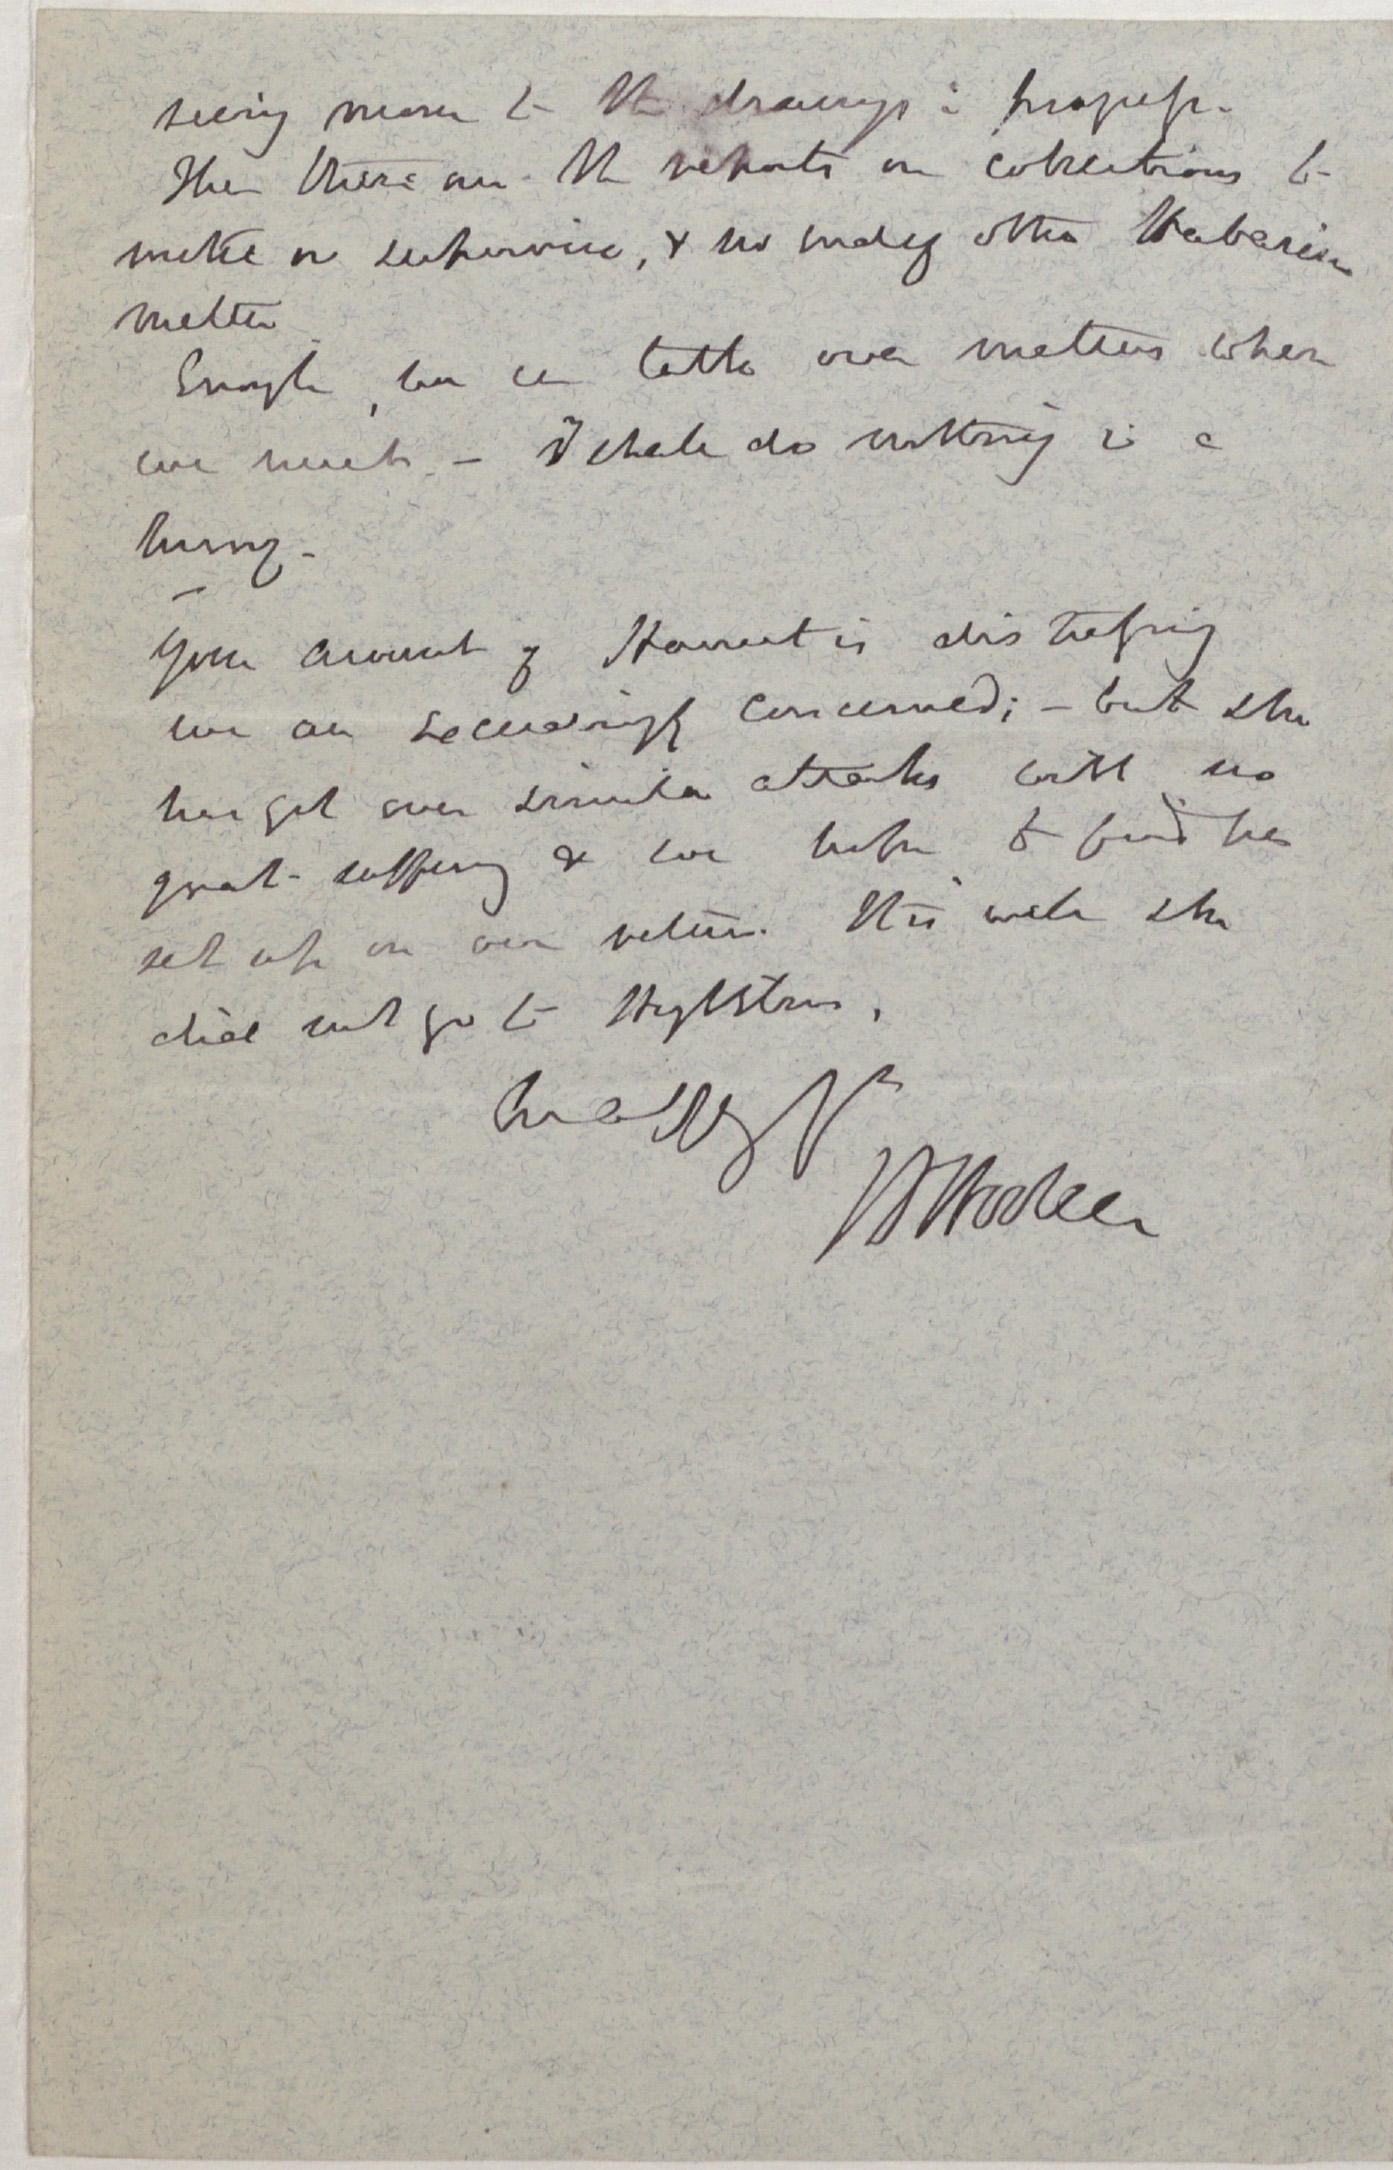 seeing more to the drawings in progress.
Then there are the reports on collections to
make or supervise, & no end of other Herbarium
matter
Enough, we can talk over matters when
we meet — I shall do nothing in a
hurry —
Your account of Harriet is distressing
we are exceedingly concerned; — but she
has got over similar attacks with no
great suffering & we hope to find her
set up on our return. It is well she
did not go to
Jos D Hooker